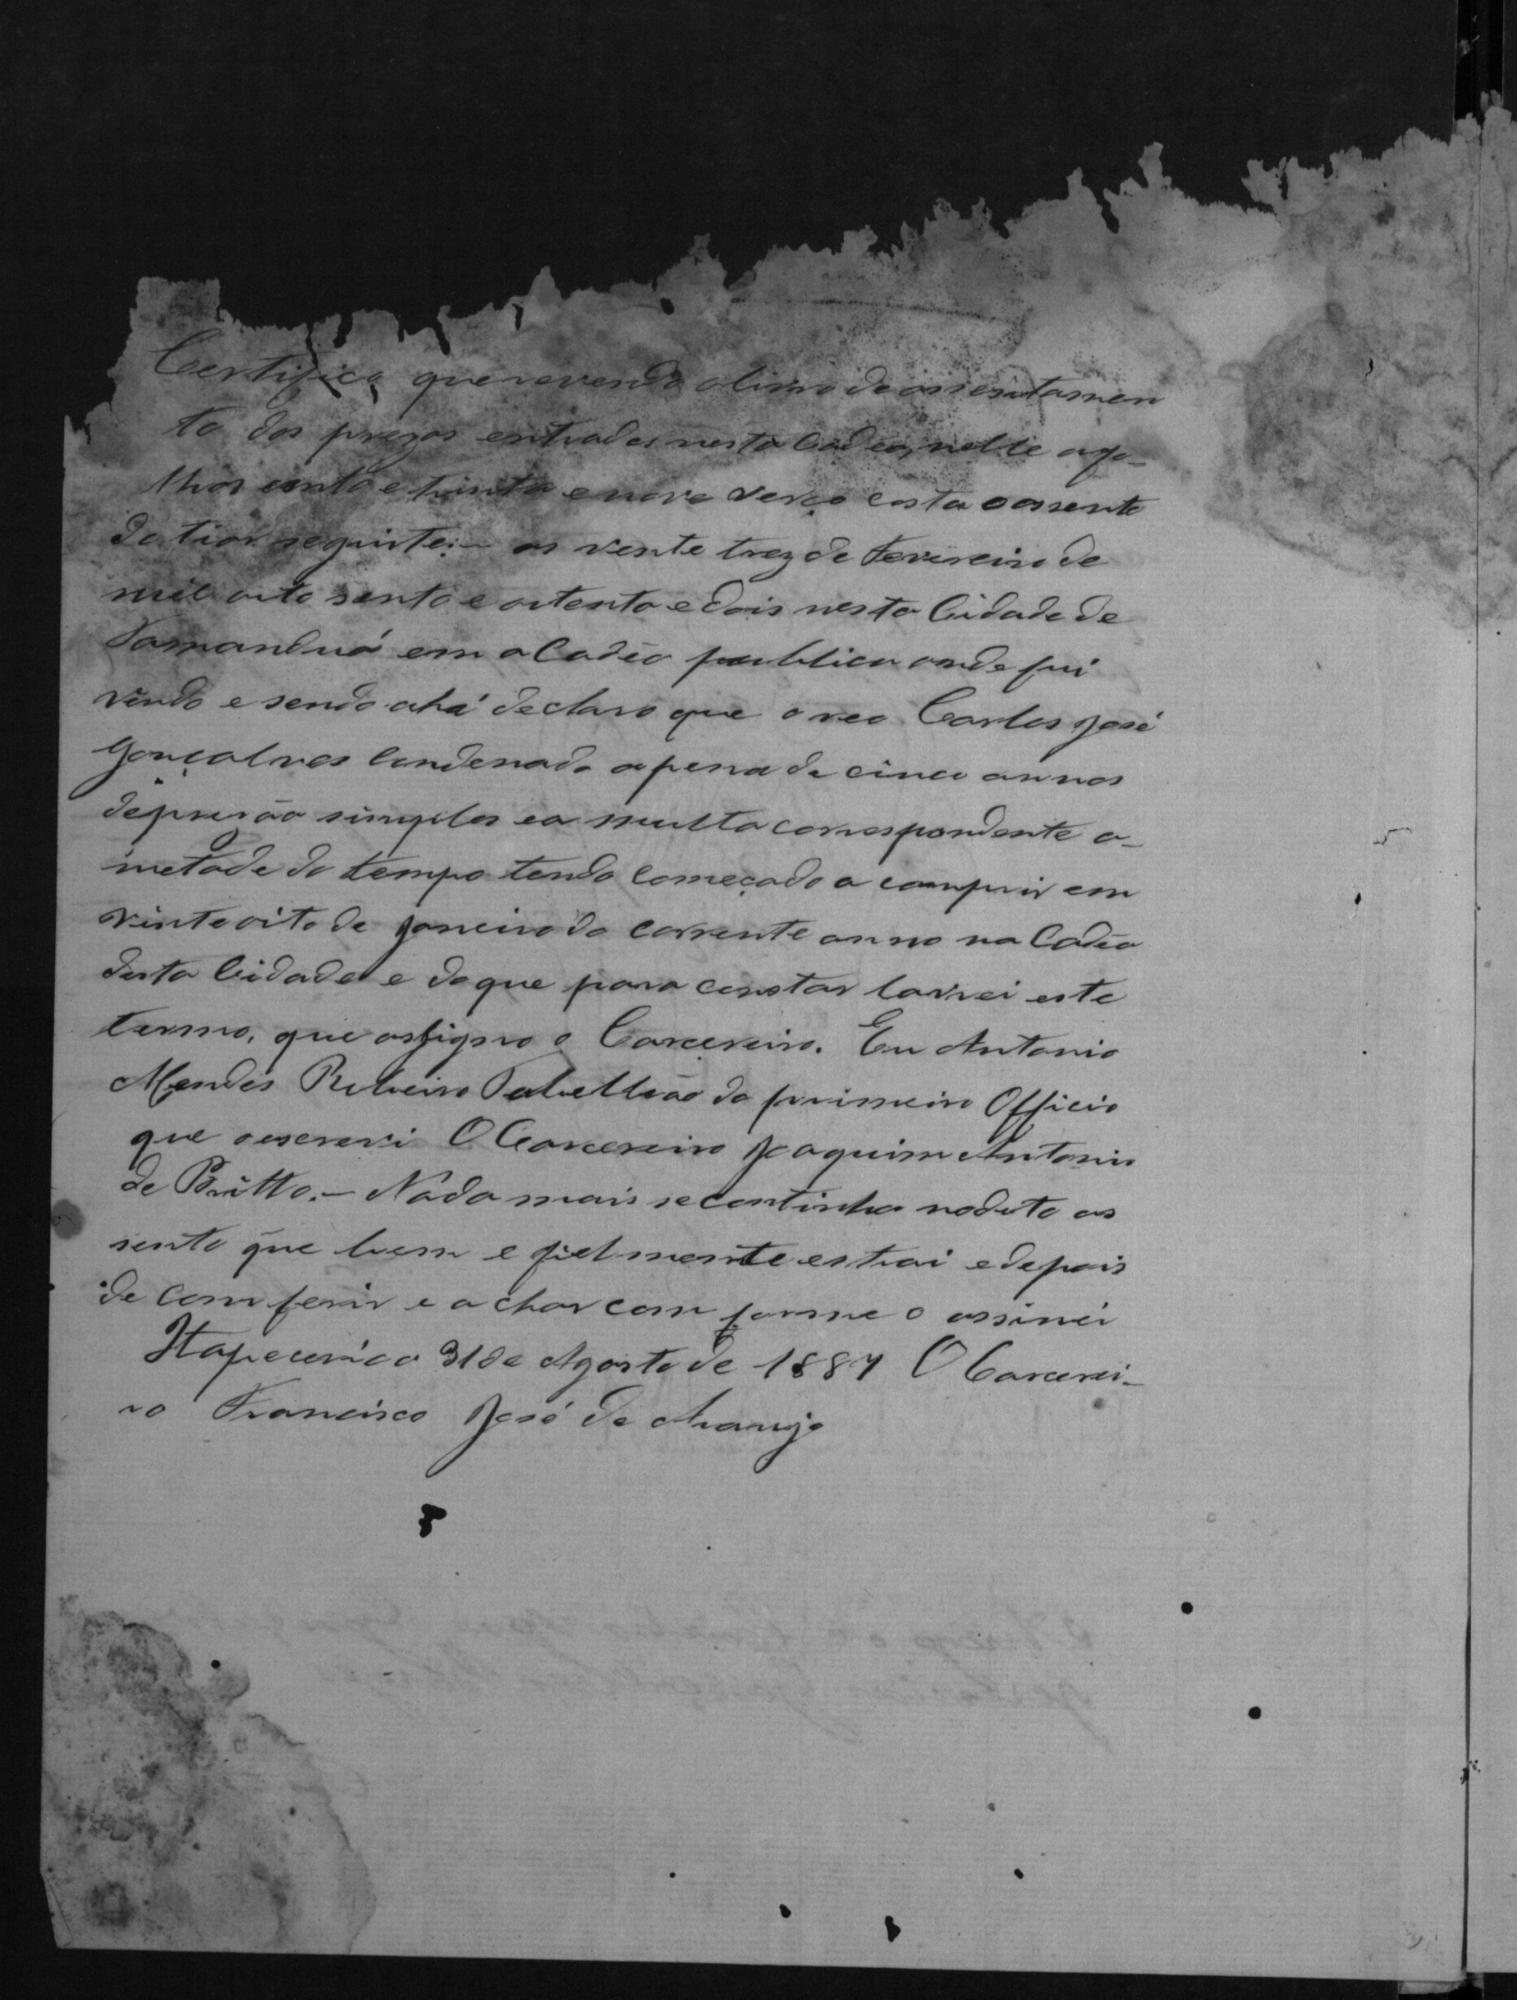 Certifico que revendo o livro de assentamen
to dos prezos entrados nesta Cadea, nelle a fo-
lhas cento e trinta e nove verço costa o assento
do tior seguinte:- as vente trez de Fevereiro de
mil oito sento e oitenta e dois nesta Cidade de
Tamanduá em a Cadêa publica onde fui
vindo e sendo ahi declaro que o reo Carlos José
Gonçalves Condenado a pena de cinco annos
de prezão simples e a multa correspondente a-
metade do tempo tendo começado a comprir em
vinte oito de Janeiro do corrente anno na Cadêa
desta Cidade e do que para constar lavrei este
termo, que assigno o Carcereiro. Eu Antonio
Mendes Ribeiro Tabellião do primeiro Officio
que o escrevi O Carcereiro Joaquim Antonio
de Britto.- Nada mais se continha no dito as
sento que bem e fielmente estrai e depois
de comferir e a char com forme o assinei
Itapecerica 31 de Agosto de 1887 O Carcerei-
ro Francisco José de Araujo